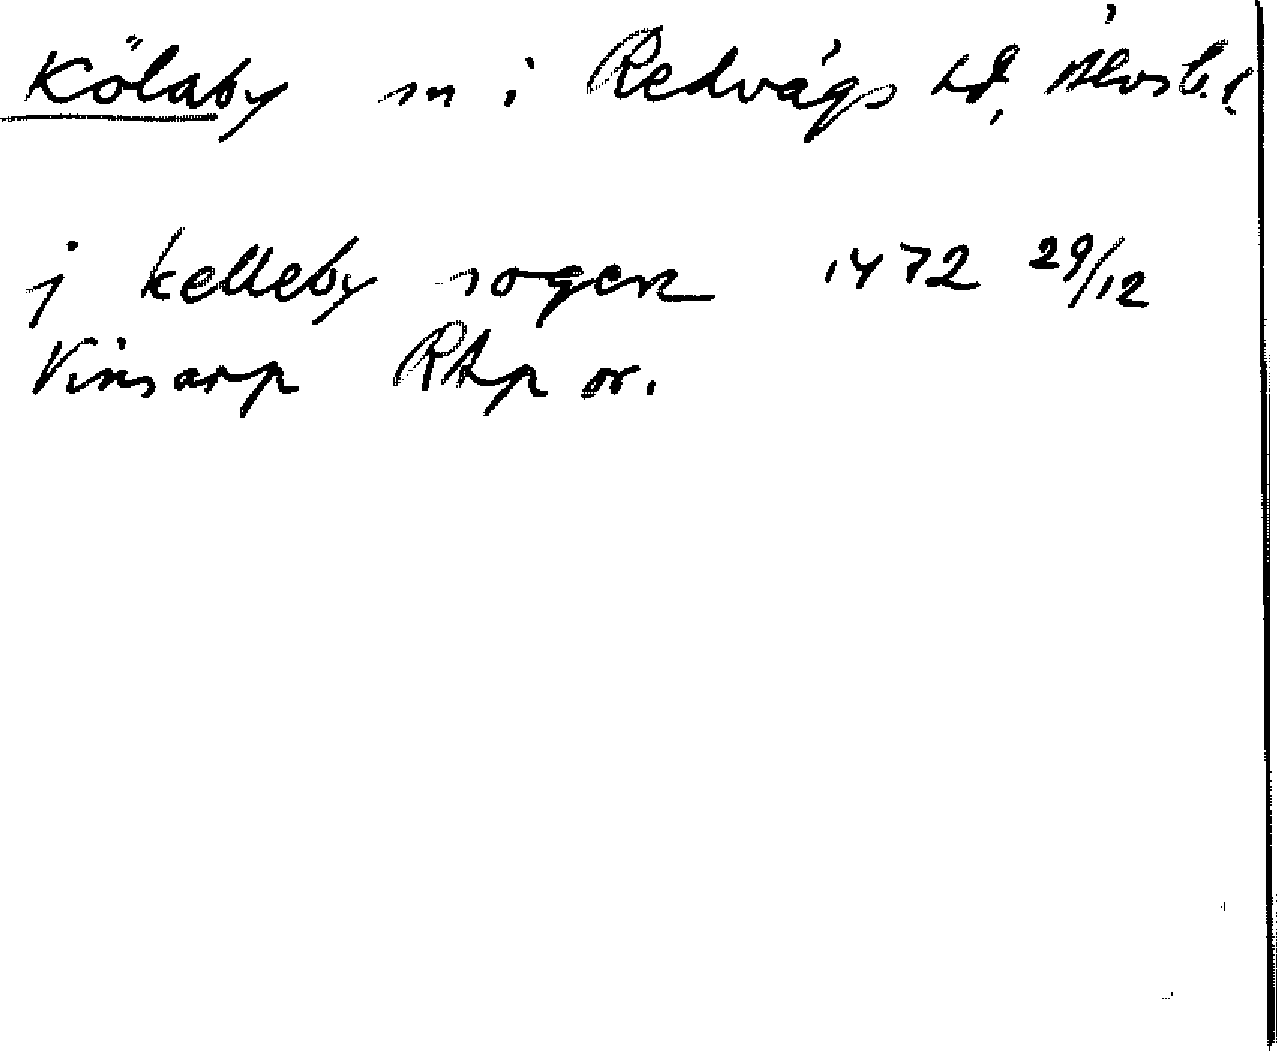 Kölaby sn i Redvägs hd, Älvsb. l
j kelleby sogen 1472 29/12
Vinsarp RAp or.